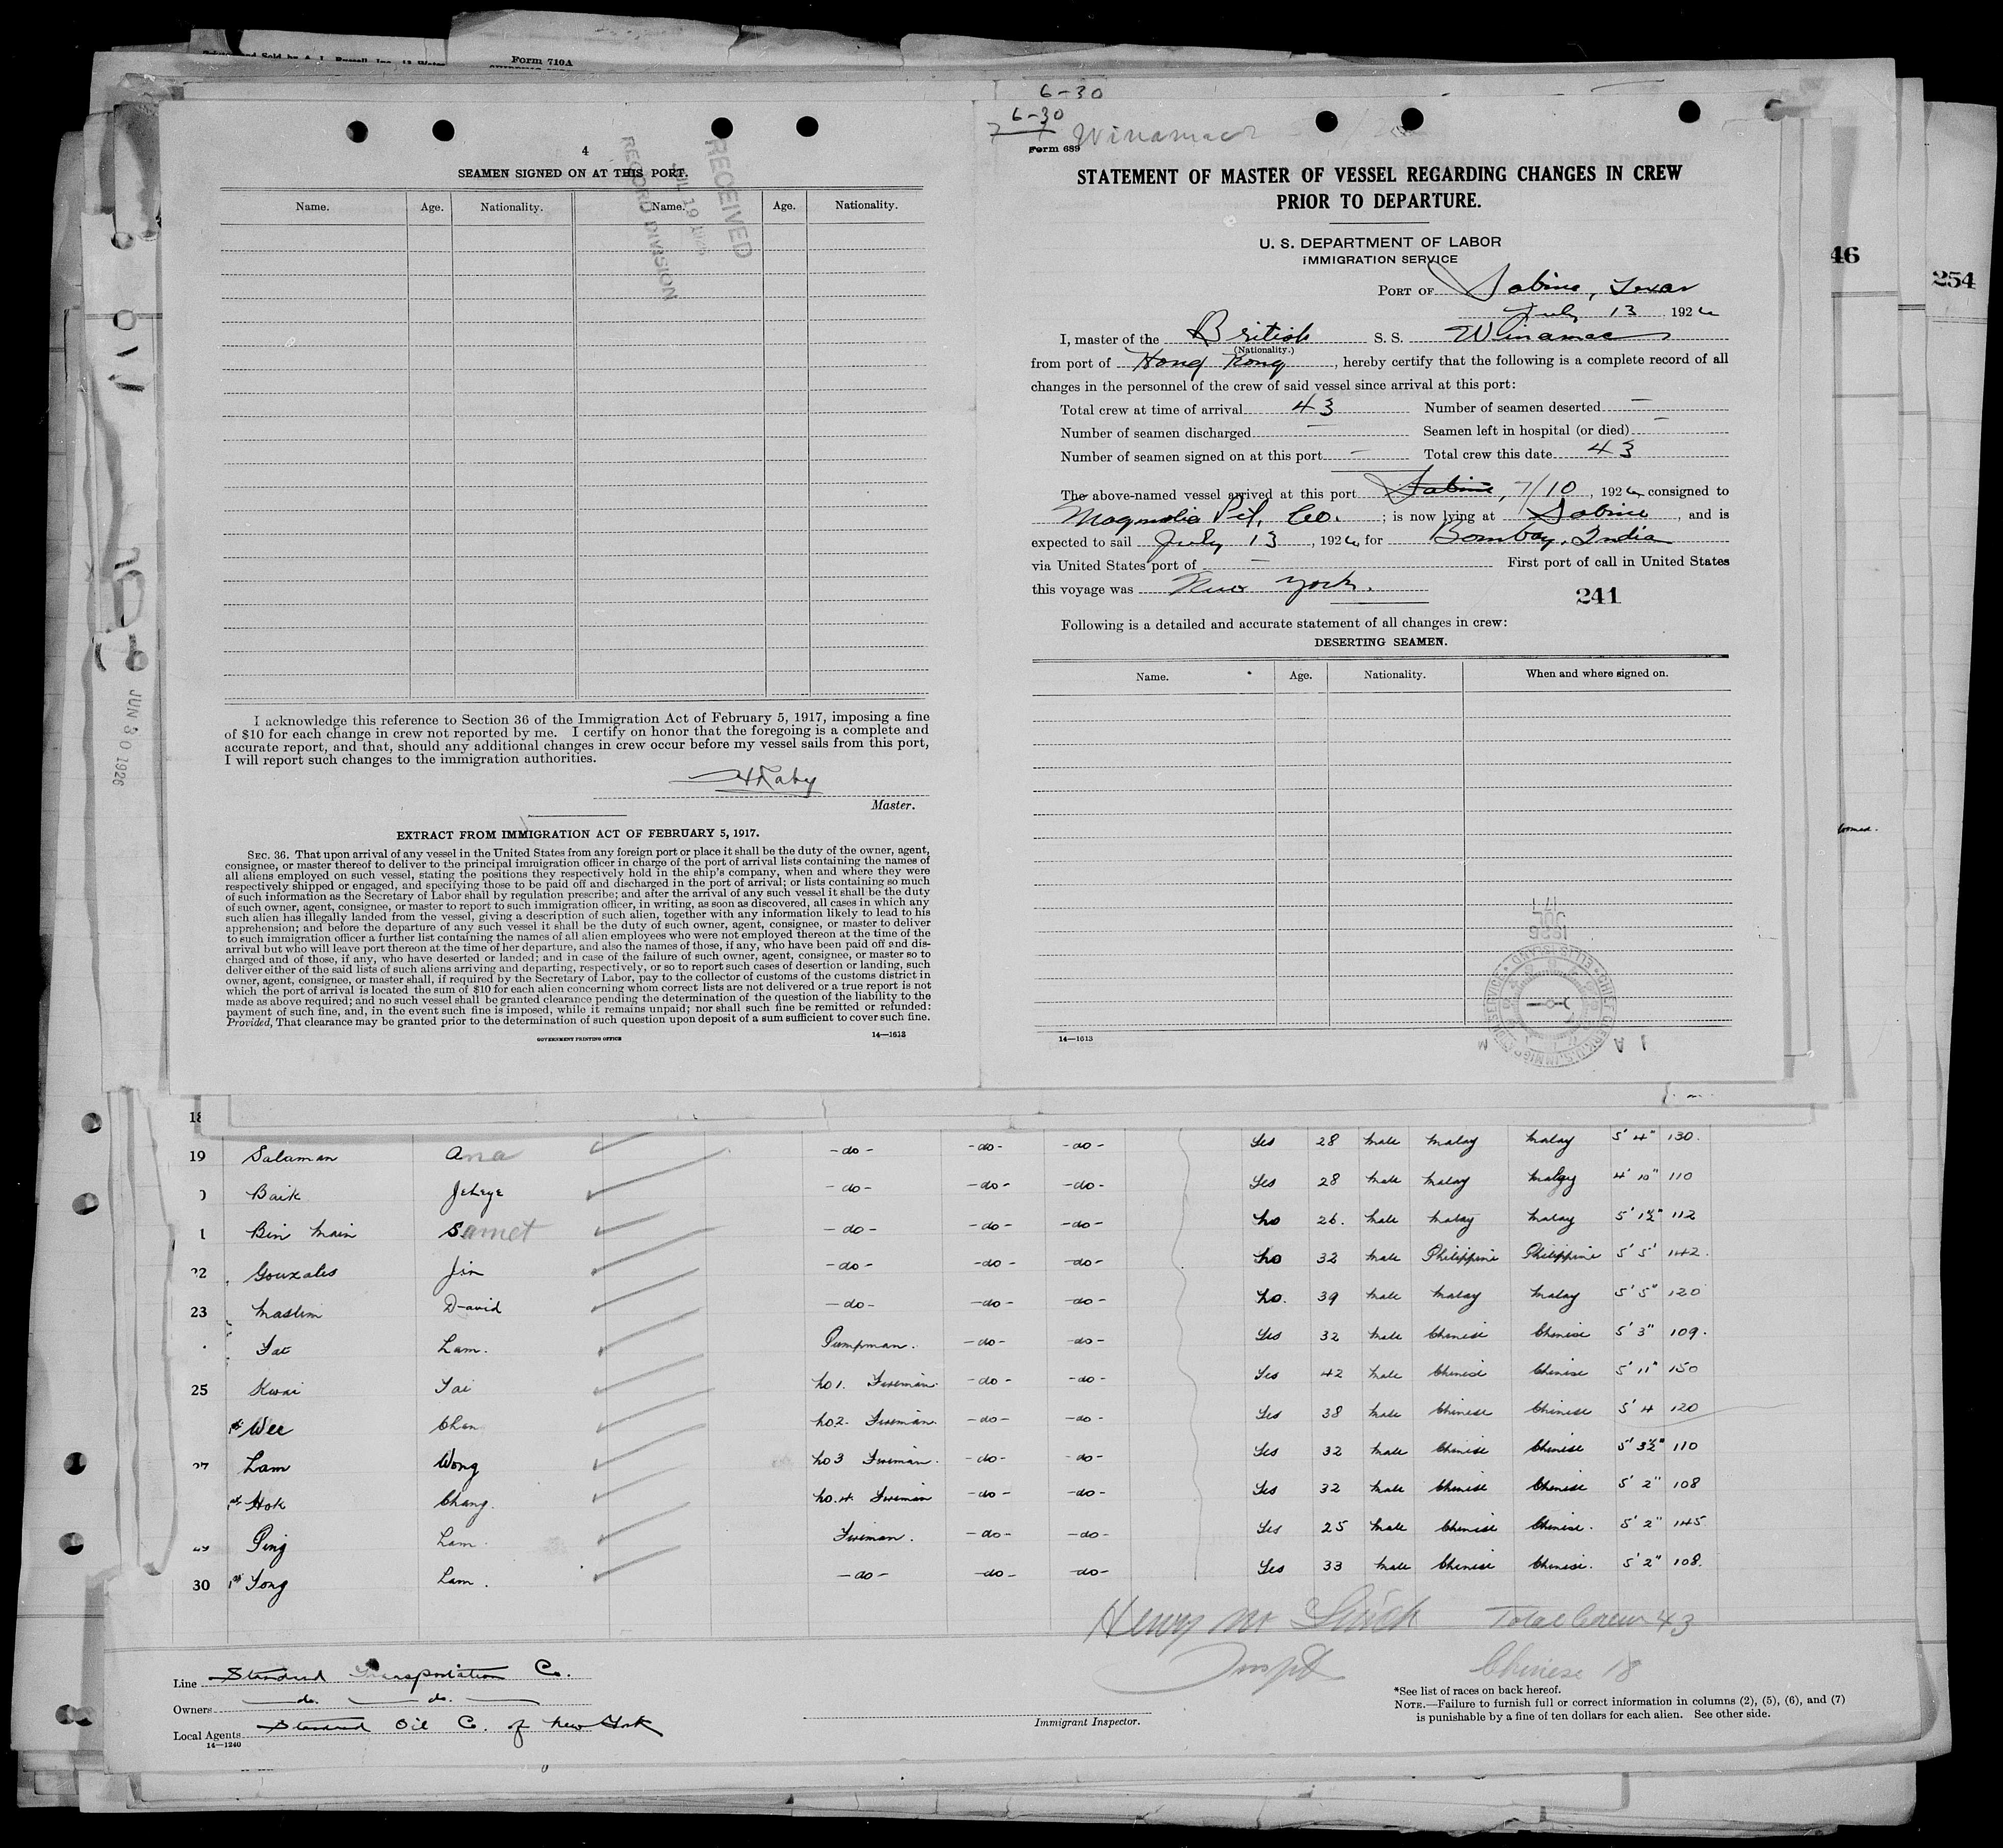 Form 710A
46
254
4
SEAMEN SIGNED ON AT THIS PORT.
RECEIVED
JUL 19 1926
RECORD DIVISION
Name. Age. Nationality. Name. Age. Nationality.
I acknowledge this reference to Section 36 of the Immigration Act of February 5, 1917, imposing a fine
of $10 for each change in crew not reported by me. I certify on honor that the foregoing is a complete and
accurate report, and that, should any additional changes in crew occur before my vessel sails from this port,
I will report such changes to the immigration authorities.
Master.
EXTRACT FROM IMMIGRATION ACT OF FEBRUARY 5, 1917.
SEC. 36. That upon arrival of any vessel in the United States from any foreign port or place it shall be the duty of the owner, agent,
consignee, or master thereof to deliver to the principal immigration officer in charge of the port of arrival lists containing the names of
all aliens employed on such vessel, stating the positions they respectively hold in the ship's company, when and where they were
respectively shipped or engaged, and specifying those to be paid off and discharged in the port of arrival; or lists containing so much
of such information as the Secretary of Labor shall by regulation prescribe; and after the arrival of any such vessel it shall be the duty
of such owner, agent, consignee, or master to report to such immigration officer, in writing, as soon as discovered, all cases in which any
such alien has illegally landed from the vessel, giving a description of such alien, together with any information likely to lead to his
apprehension; and before the departure of any such vessel it shall be the duty of such owner, agent, consignee, or master to deliver
to such immigration officer a further list containing the names of all alien employees who were not employed thereon at the time of the
arrival but who will leave port thereon at the time of her departure, and also the names of those, if any, who have been paid off and dis-
charged and of those, if any, who have deserted or landed; and in case of the failure of such owner, agent, consignee, or master so to
deliver either of the said lists of such aliens arriving and departing, respectively, or so to report such cases of desertion or landing, such
owner, agent, consignee, or master shall, if required by the Secretary of Labor, pay to the collector of customs of the customs district in
which the port of arrival is located the sum of $10 for each alien concerning whom correct lists are not delivered or a true report is not
made as above required; and no such vessel shall be granted clearance pending the determination of the question of the liability to the
payment of such fine, and, in the event such fine is imposed, while it remains unpaid; nor shall such fine be remitted or refunded:
Provided, That clearance may be granted prior to the determination of such question upon deposit of a sum sufficient to cover such fine.
GOVERNMENT PRINTING OFFICE
14—1613
JUN 30 1926
6-30
6-30
Form 689
Winamac
STATEMENT OF MASTER OF VESSEL REGARDING CHANGES IN CREW
PRIOR TO DEPARTURE.
U. S. DEPARTMENT OF LABOR
IMMIGRATION SERVICE
PORT OF Sabine, Texas
July 13 1926
I, master of the British S. S. Winamac
(Nationality.)
from port of Hong Kong, hereby certify that the following is a complete record of all
changes in the personnel of the crew of said vessel since arrival at this port:
Total crew at time of arrival 43 Number of seamen deserted —
Number of seamen discharged — Seamen left in hospital (or died) —
Number of seamen signed on at this port — Total crew this date 43
The above-named vessel arrived at this port Sabine, 7/10, 1926 consigned to
Magnolia Pet. Co. ; is now lying at Sabine, and is
expected to sail July 13, 1926 for Bombay, India
via United States port of — First port of call in United States
this voyage was New York.
241
Following is a detailed and accurate statement of all changes in crew:
DESERTING SEAMEN.
Name. Age. Nationality. When and where signed on.
14—1613
18
19 Salaman Ana -do- -do- -do- Yes 28 Male Malay Malay 5' 4" 130.
Baik Jeleye -do- -do- -do- Yes 28 Male Malay Malay 4' 10" 110
1 Bin Main Samet -do- -do- -do- No 26. Male Malay Malay 5' 1½" 112
22 Gouzales Jin -do- -do- -do- No 32 Male Philippine Philippine 5' 5" 142.
23 Maslim David -do- -do- -do- No. 39 Male Malay Malay 5' 5" 120
Fat Lam. Pumpman. -do- -do- Yes 32 Male Chinese Chinese 5' 3" 109.
25 Kwai Tai No 1. Fireman. -do- -do- Yes 42 Male Chinese Chinese 5' 11" 150
Wee Chan No 2. Fireman. -do- -do- Yes 38 Male Chinese Chinese 5' 4 120
27 Lam Wong No 3 Fireman. -do- -do- Yes 32 Male Chinese Chinese 5' 3½" 110
Hok Chang. No. 4. Fireman -do- -do- Yes 32 Male Chinese Chinese 5' 2" 108
29 Ping Lam Fireman. -do- -do- Yes 25 Male Chinese Chinese. 5' 2" 145
30 Yong Lam. -do- -do- -do- Yes 33 Male Chinese Chinese. 5' 2" 108.
Total Crew 43
Chinese 18
Line Standard Transportation Co.
Owners do. do.
Local Agents Standard Oil Co. of New York
14—1240
Immigrant Inspector.
*See list of races on back hereof.
NOTE.—Failure to furnish full or correct information in columns (2), (5), (6), and (7)
is punishable by a fine of ten dollars for each alien. See other side.